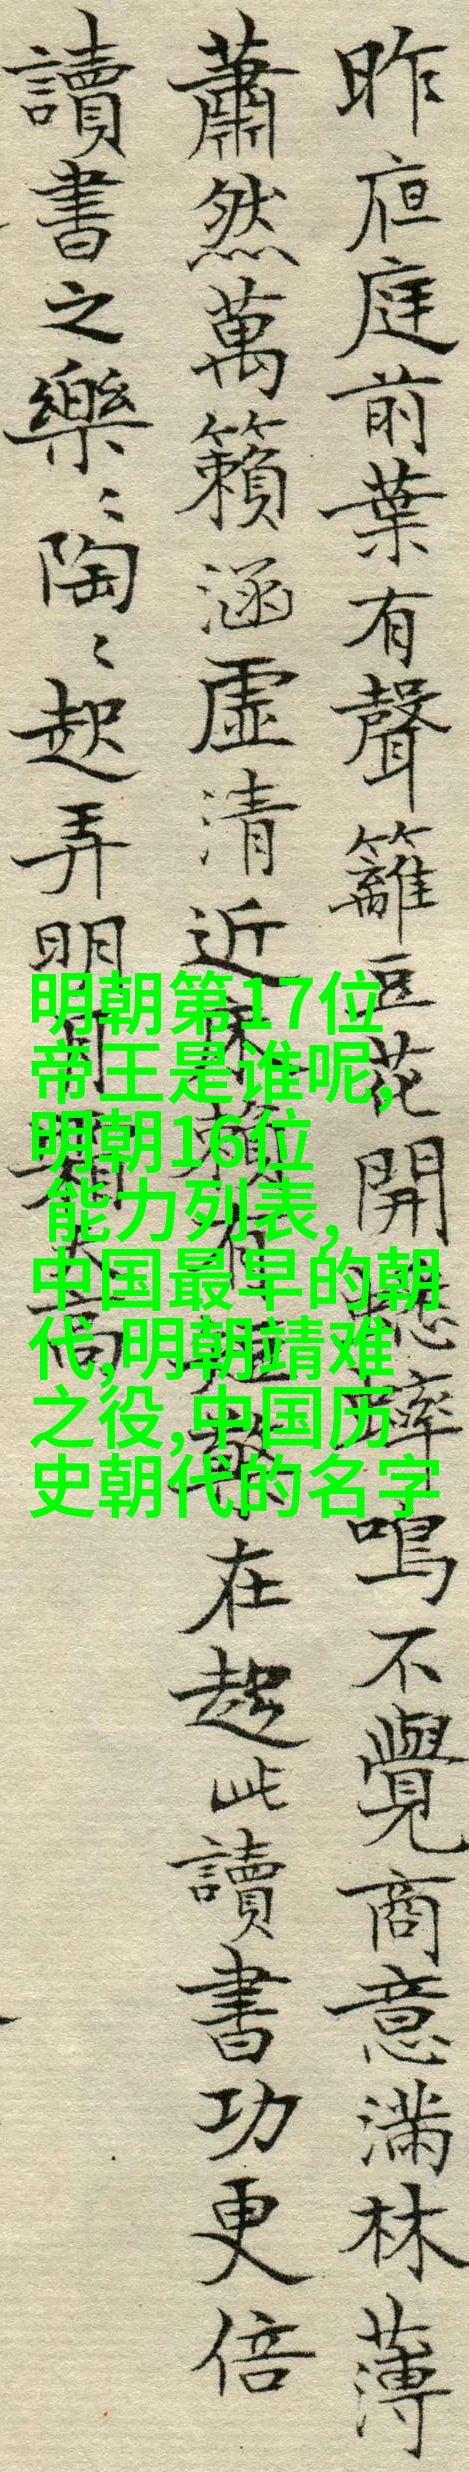 昨夜庭前葉有聲籬豆花開蟋蟀鳴不覺商意滿林薄
蕭然萬籟涵虛清近床賴有短檠在趂此讀書功更倍
讀書之樂〻陶〻起弄明月霜天高
明朝第17位
帝王是谁呢,
明朝16位
能力列表,
中国最早的朝
代,明朝靖难
之役,中国历
史朝代的名字